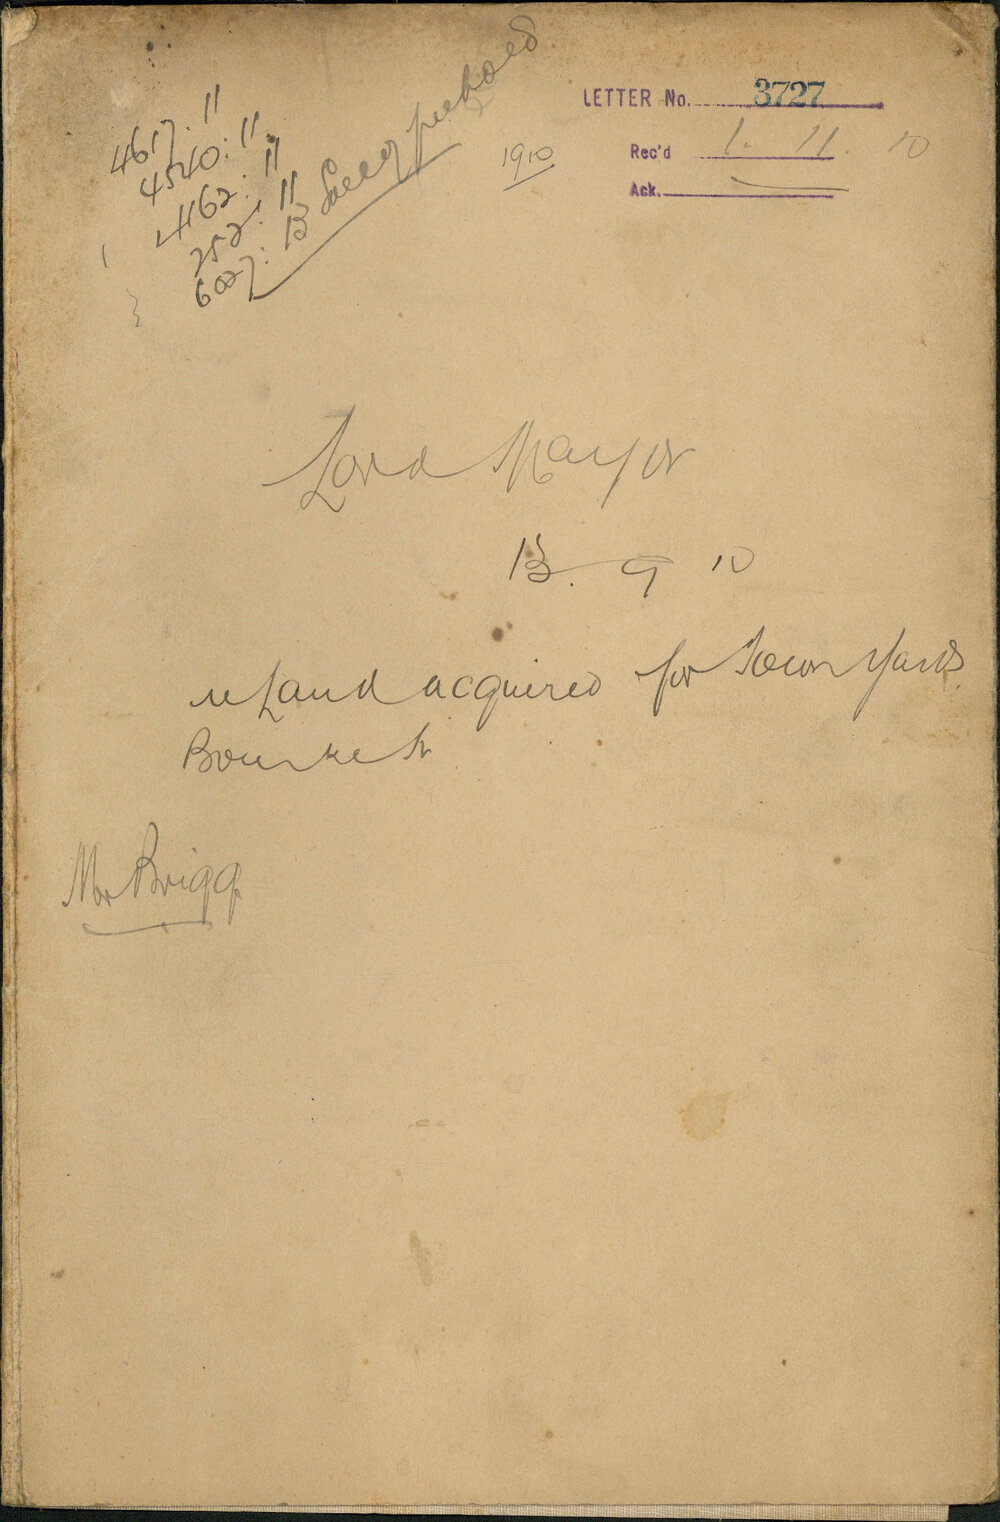 LETTER No. 3727
1910
Rec'd 1. 11. 10
Ack.
4617. 11
4540: 11.
4162: 11
252: 11
6027: 13
Lord Mayor
13. 9 10
re Land acquired for Town Yards
Bourke St
Mr Brigg